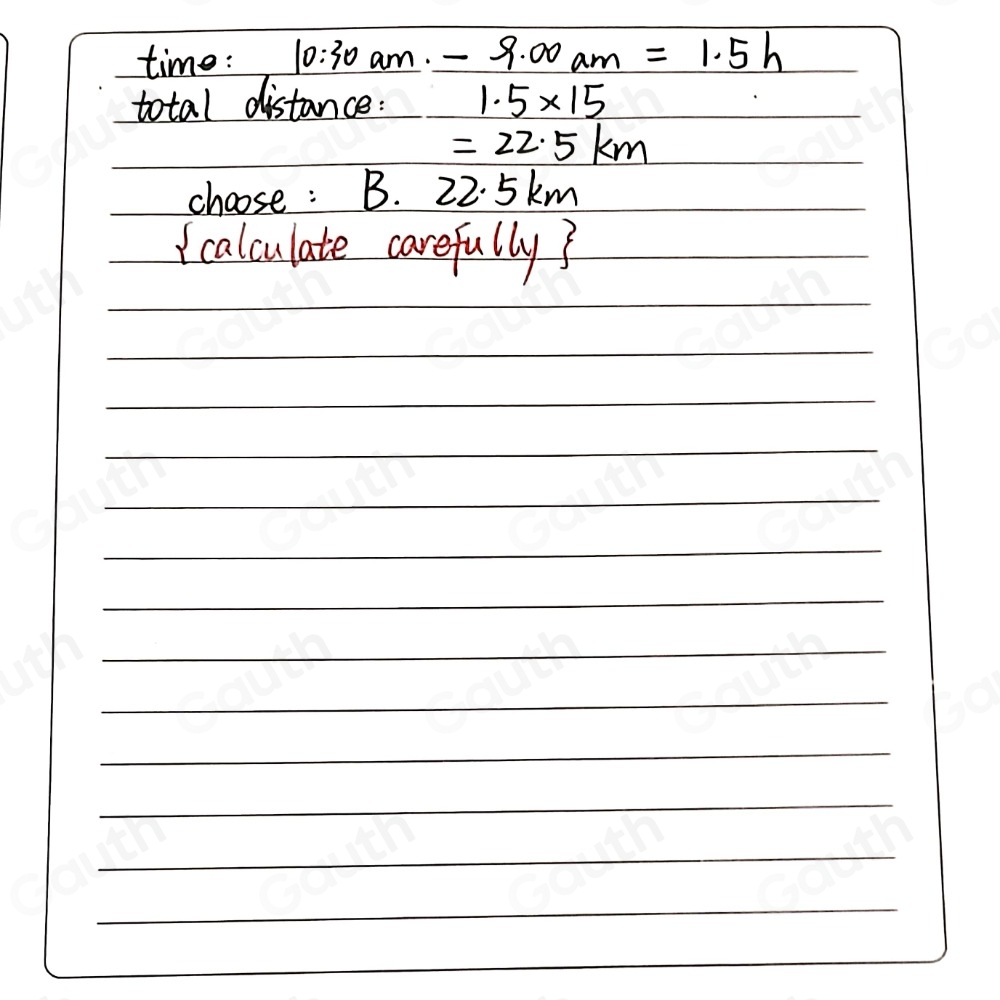 time: 10:30 am. - 9.00 am = 1.5 h
total distance: 1.5 × 15
= 22.5 km
choose : B. 22.5 km
{calculate carefully}